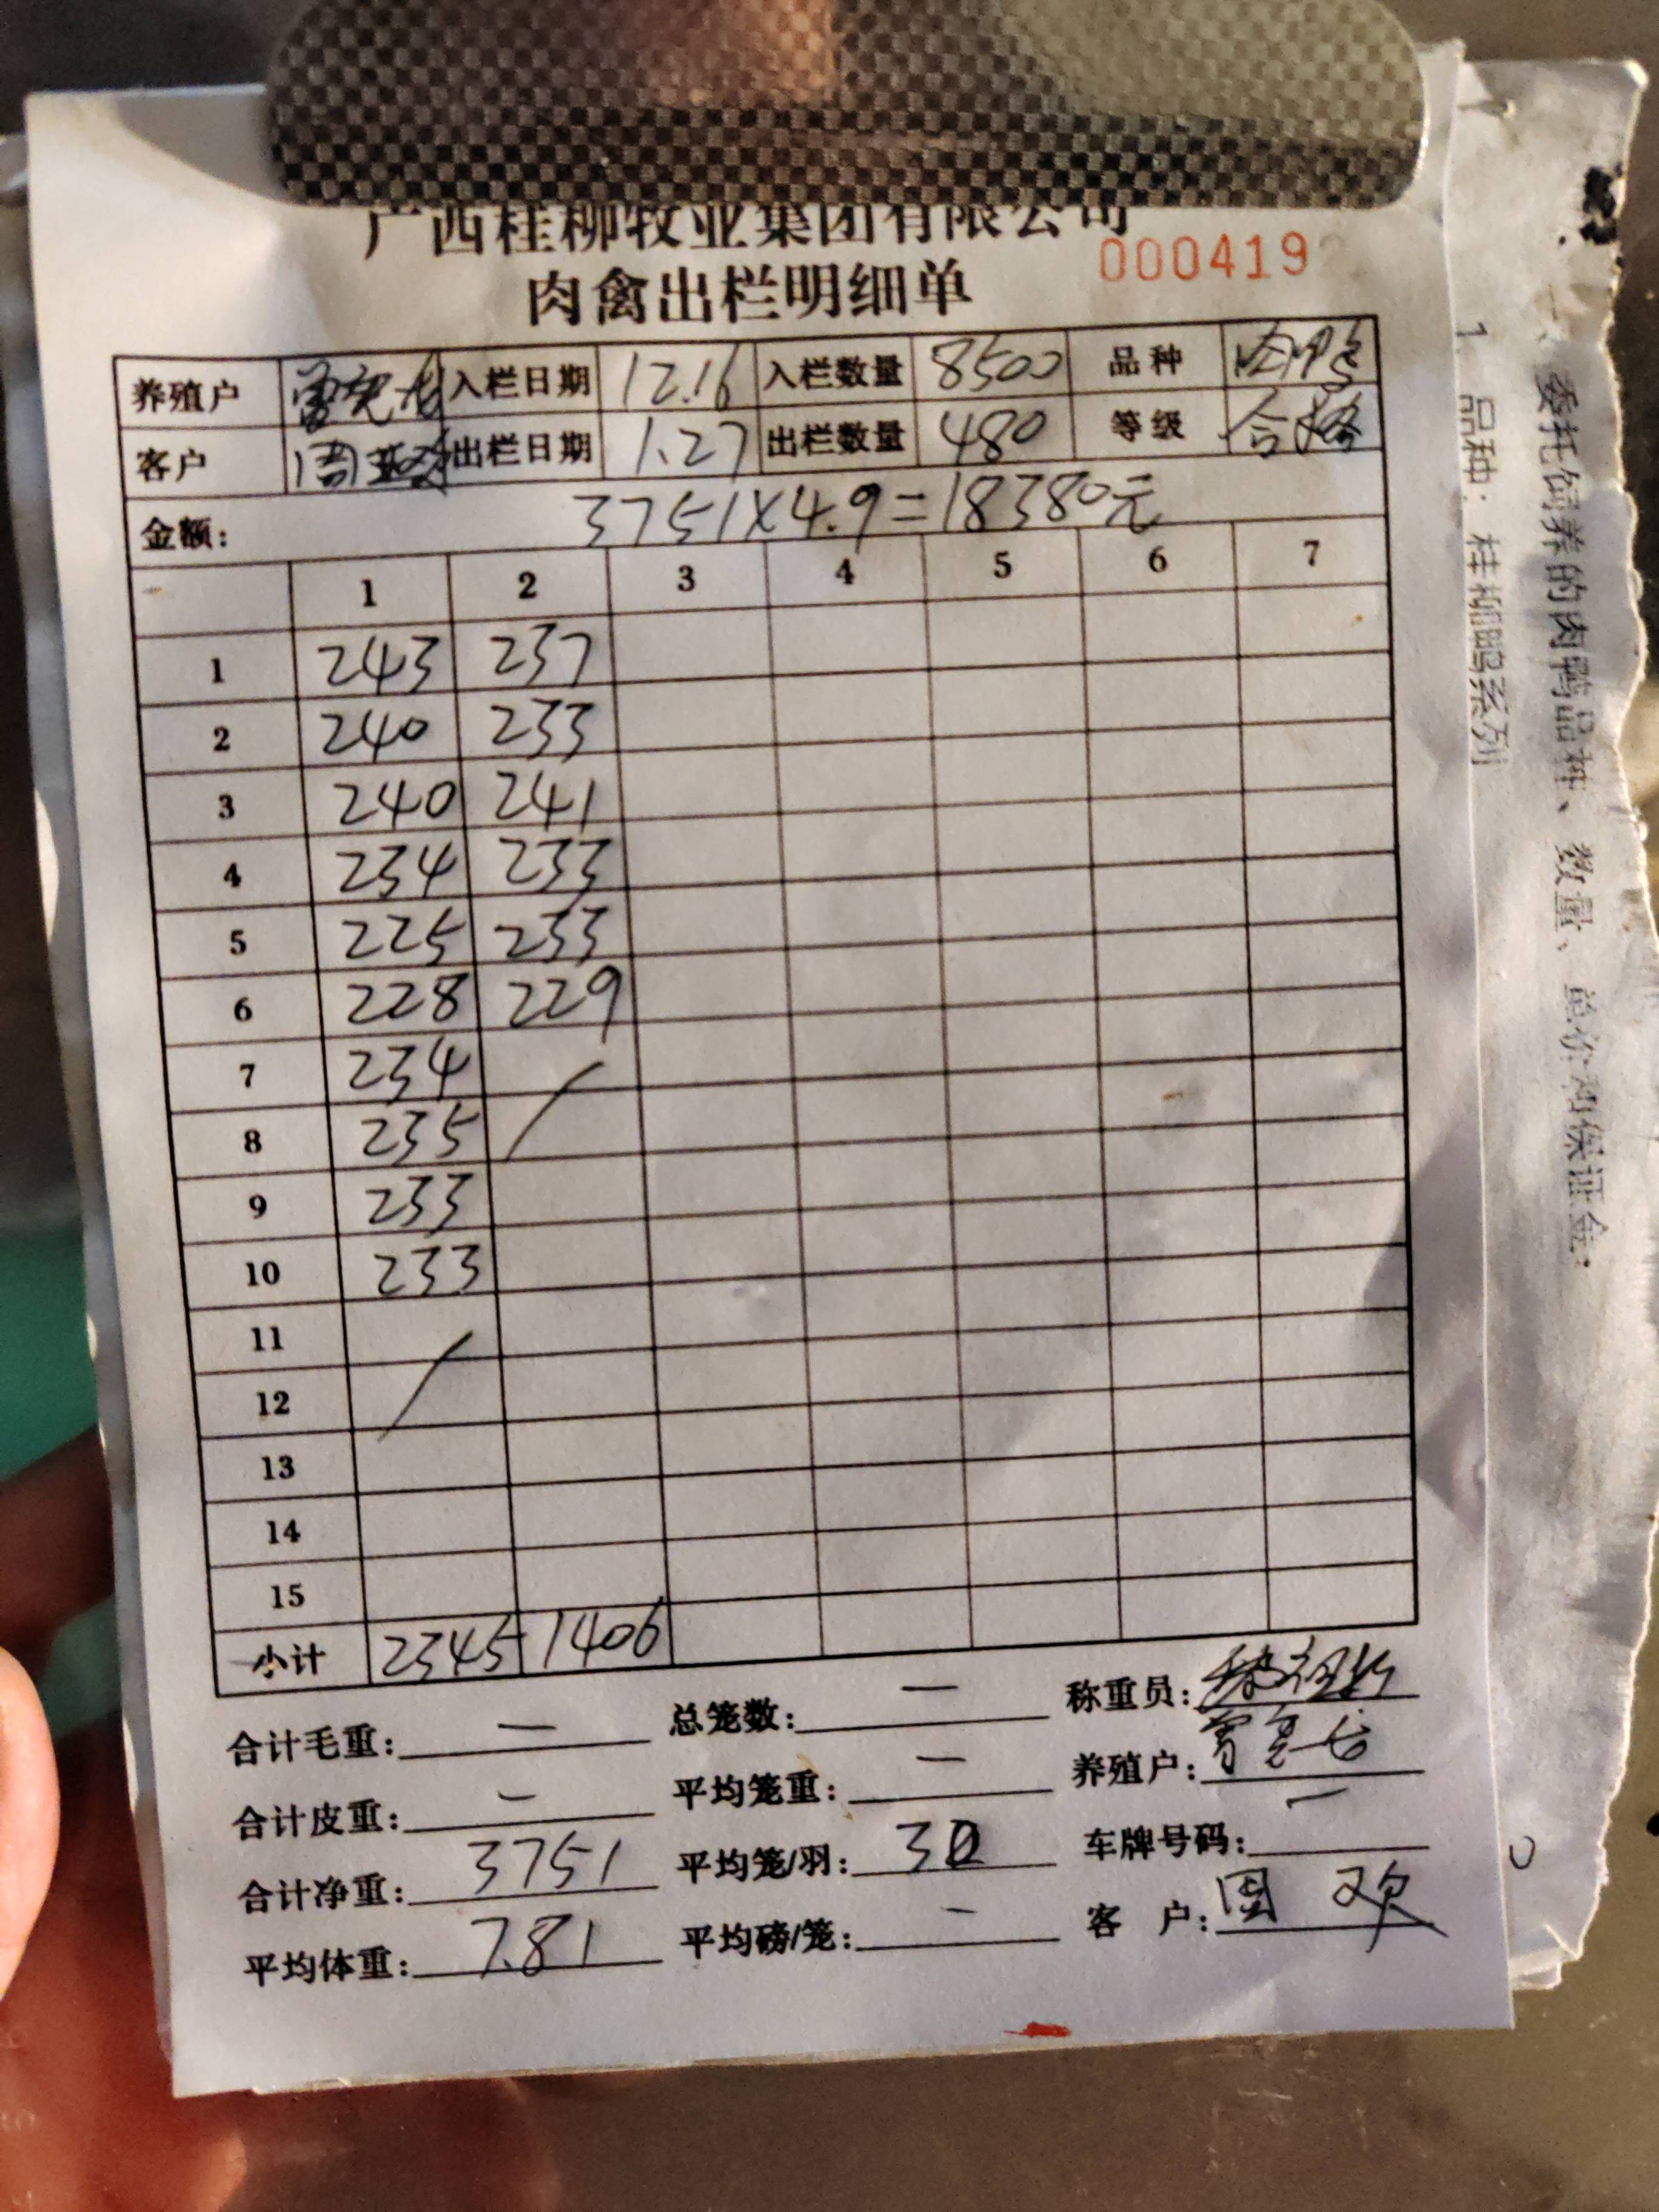 广西桂柳牧业集团有限公司
肉禽出栏明细单 000419
养殖户 入栏日期 12.16 入栏数量 8500 品种
客户 出栏日期 1.27 出栏数量 480 等级 合格
金额: 3751×4.9=18380元
1 2 3 4 5 6 7
1 243 237
2 240 233
3 240 241
4 234 233
5 225 233
6 228 229
7 234
8 235
9 233
10 233
11
12
13
14
15
小计 2345 1406
合计毛重: — 总笼数: — 称重员:
合计皮重: — 平均笼重: — 养殖户:
合计净重: 3751 平均笼/羽: 30 车牌号码: —
平均体重: 7.81 平均磅/笼: — 客 户: 周 欢
委托饲养的肉鸭品种、数量、单价和保证金:
1、品种: 桂柳鸭系列